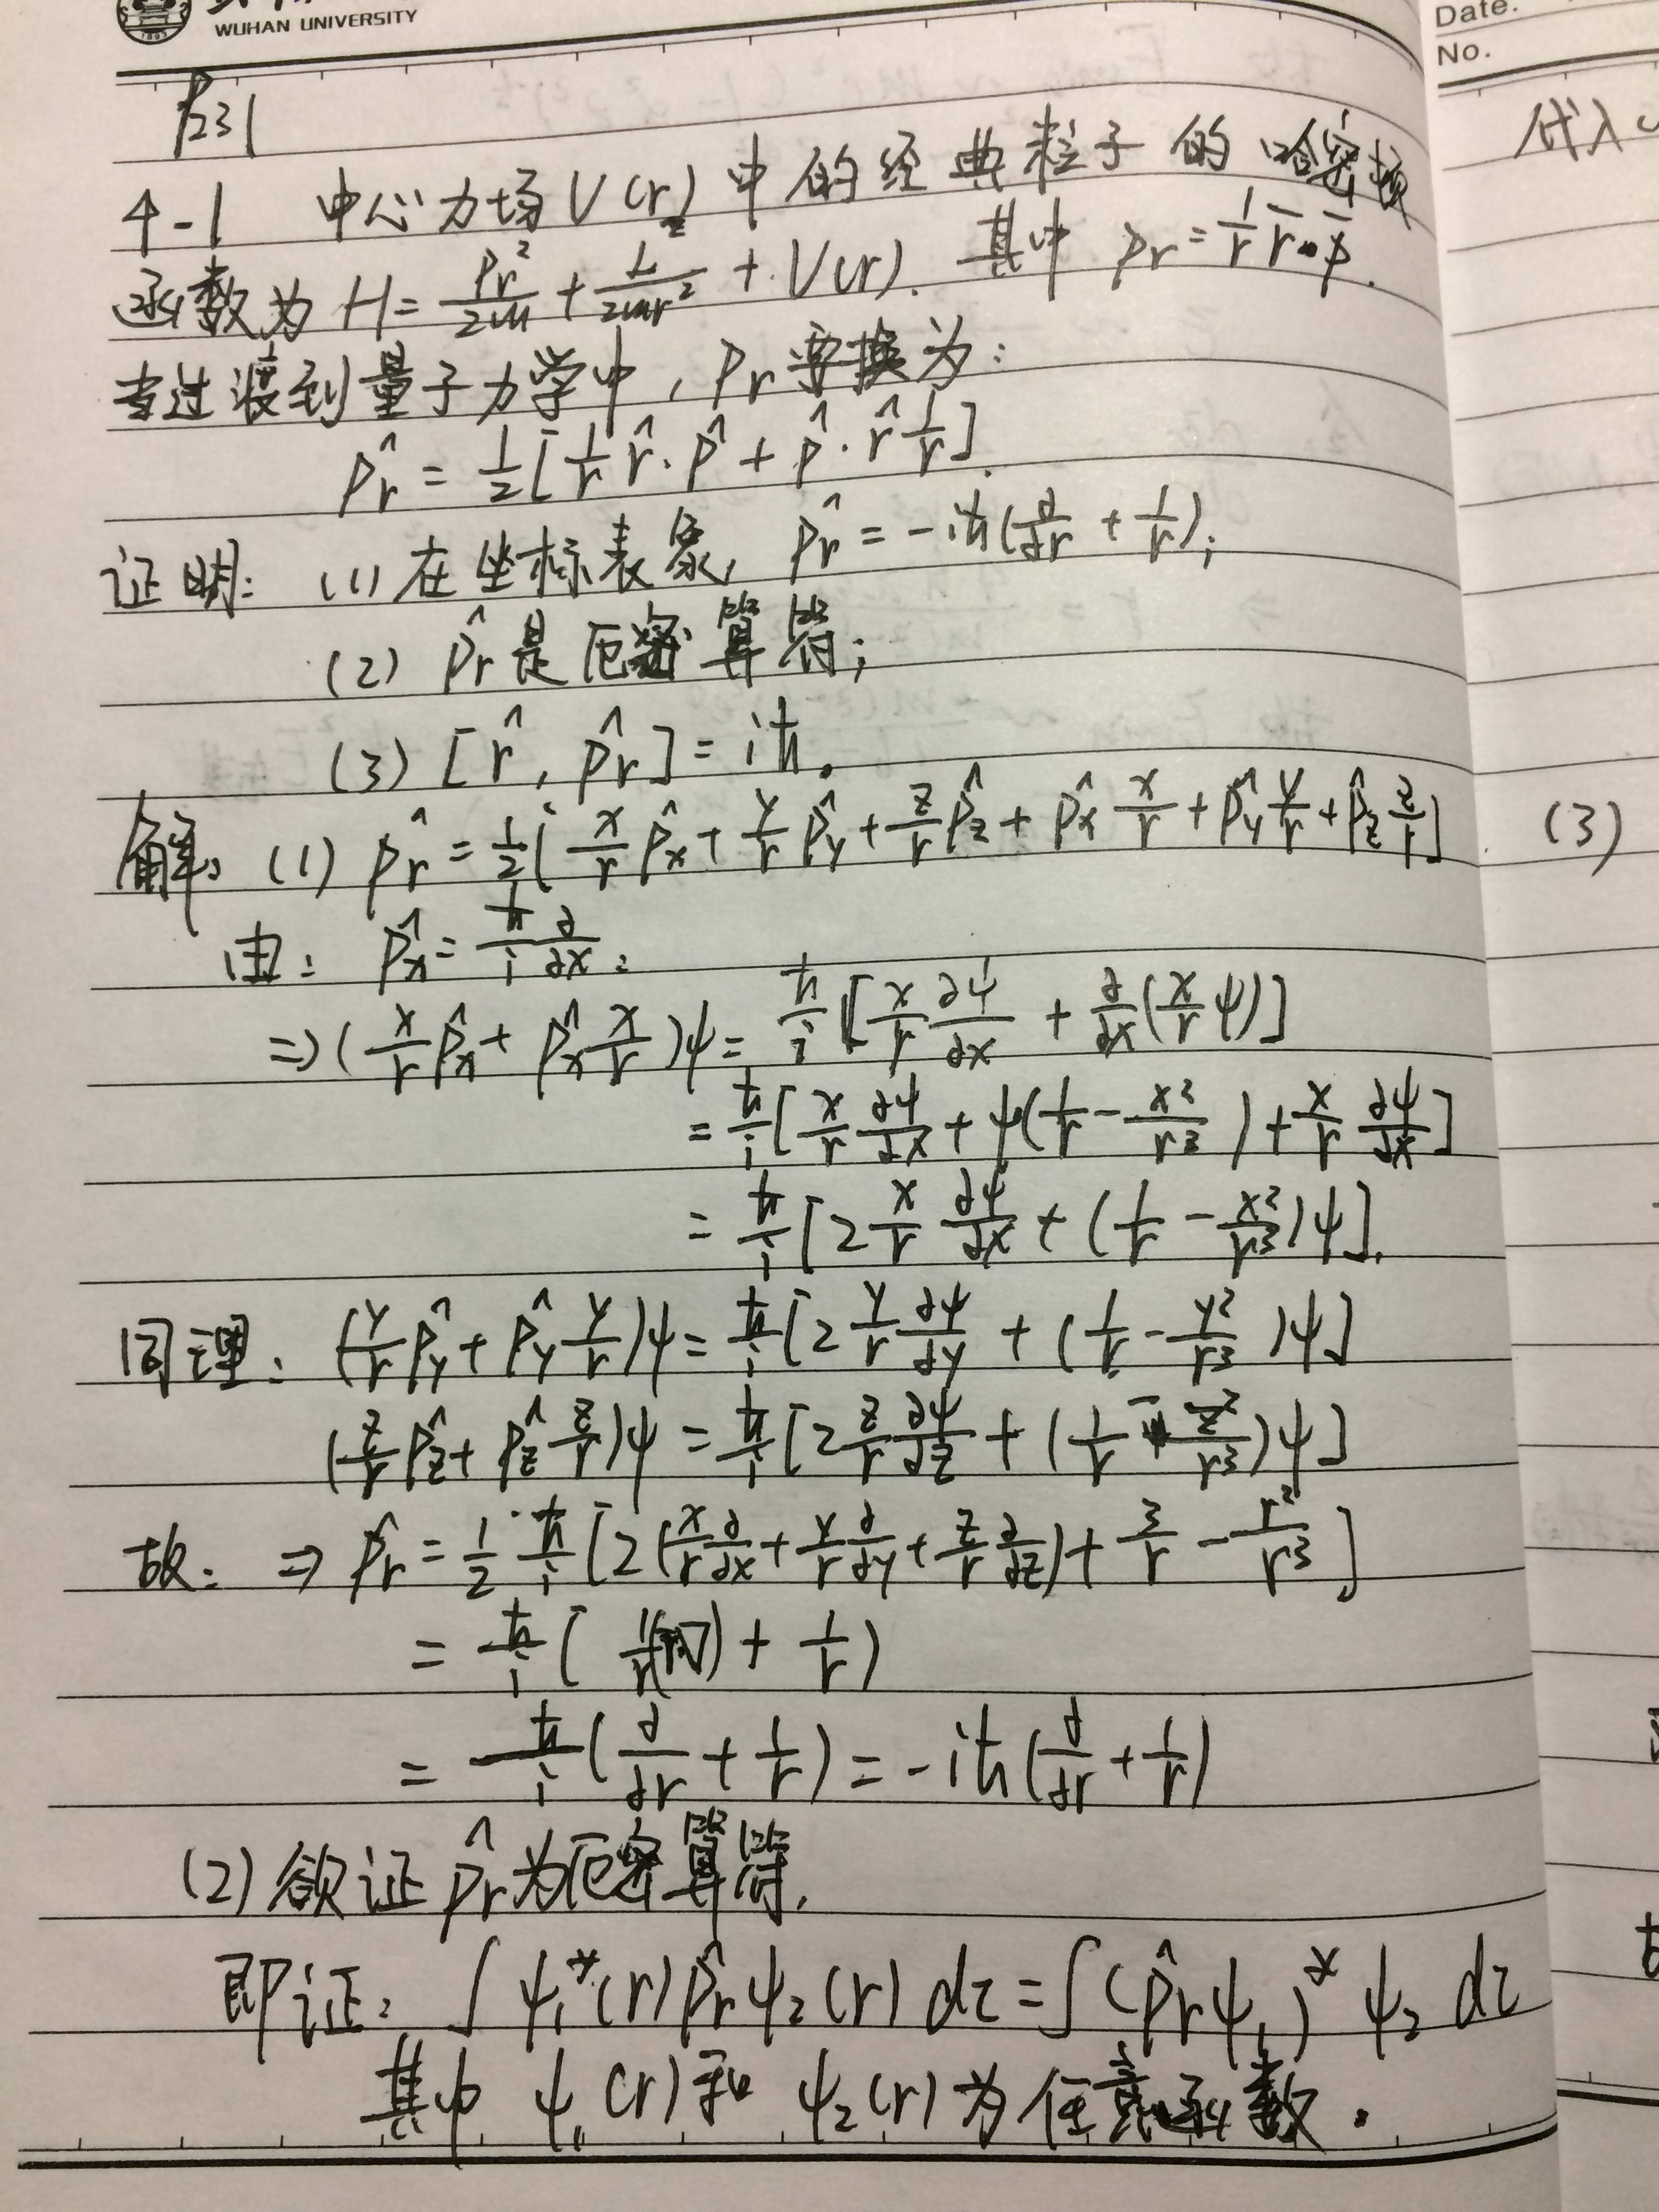 WUHAN UNIVERSITY
Date.
No.
P231
代入
4-1 中心力场V(r)中的经典粒子的哈密顿
函数为 H = Pr²/2m + L²/2mr² + V(r). 其中 Pr = 1/r r̄·p̄.
当过渡到量子力学中, Pr要换为:
p̂r = 1/2[1/r r̂·p̂ + p̂·r̂ 1/r].
证明: (1) 在坐标表象, p̂r = -iħ(∂/∂r + 1/r);
(2) p̂r是厄密算符;
(3) [r̂, p̂r] = iħ.
解: (1) p̂r = 1/2[x/r p̂x + y/r p̂y + z/r p̂z + p̂x x/r + p̂y y/r + p̂z z/r]
(3)
由: p̂x = ħ/i ∂/∂x:
⇒ (x/r p̂x + p̂x x/r)ψ = ħ/i [x/r ∂ψ/∂x + ∂/∂x(x/r ψ)]
= ħ/i [x/r ∂ψ/∂x + ψ(1/r - x²/r³) + x/r ∂ψ/∂x]
= ħ/i [2 x/r ∂ψ/∂x + (1/r - x²/r³)ψ].
同理: (y/r p̂y + p̂y y/r)ψ = ħ/i [2 y/r ∂ψ/∂y + (1/r - y²/r³)ψ]
(z/r p̂z + p̂z z/r)ψ = ħ/i [2 z/r ∂ψ/∂z + (1/r - z²/r³)ψ]
故: ⇒ p̂r = 1/2 · ħ/i [2(x/r ∂/∂x + y/r ∂/∂y + z/r ∂/∂z) + 3/r - r²/r³]
= ħ/i (1/r(r∇) + 1/r)
= ħ/i (∂/∂r + 1/r) = -iħ(∂/∂r + 1/r)
(2) 欲证 p̂r为厄密算符,
即证: ∫ψ₁*(r) p̂r ψ₂(r) dτ = ∫(p̂r ψ₁)* ψ₂ dτ
其中 ψ₁(r)和 ψ₂(r)为任意函数.